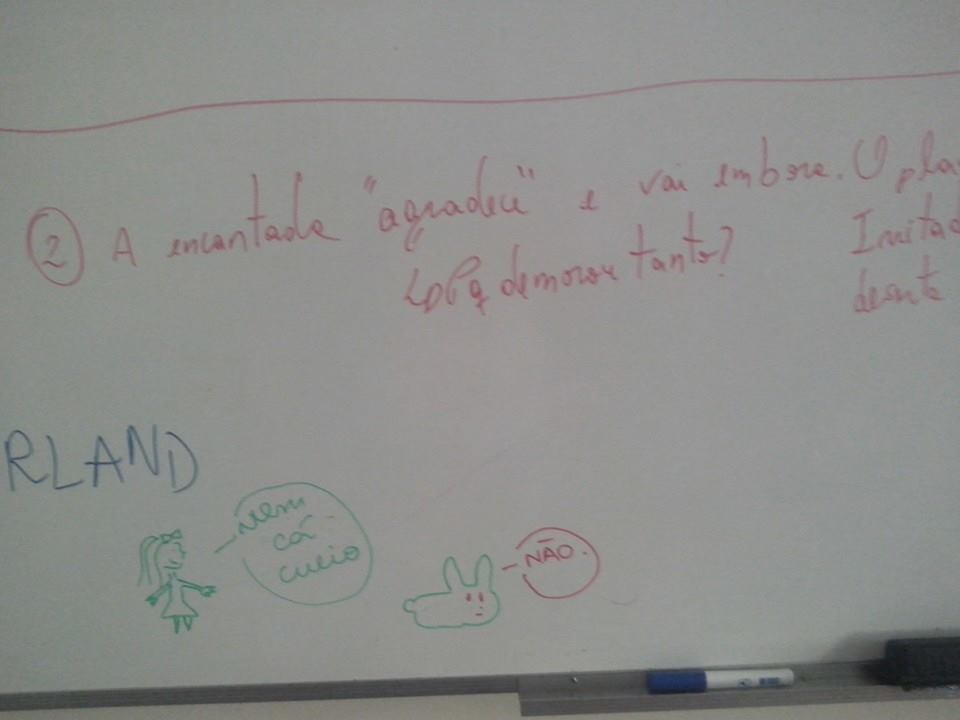 2 A encantada "agradece" e vai embora. O pla
↳ Pq demorou tanto?
Imitad
deante
RLAND
vem
cá
cueio
NÃO.